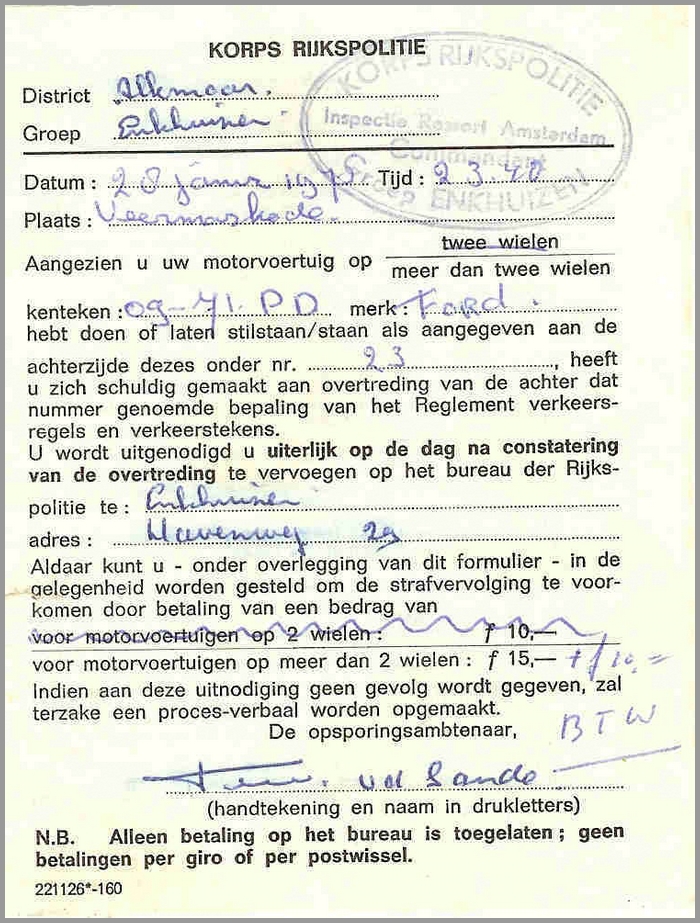 KORPS RIJKSPOLITIE
KORPS RIJKSPOLITIE
Inspectie Ressort Amsterdam
Commandant
Groep ENKHUIZEN
District Alkmaar.
Groep Enkhuizen
Datum : 28 1975 Tijd : 23.40
Plaats :
twee wielen
Aangezien u uw motorvoertuig op
meer dan twee wielen
kenteken : 09-71. PD merk : Ford.
hebt doen of laten stilstaan/staan als aangegeven aan de
achterzijde dezes onder nr. 23, heeft
u zich schuldig gemaakt aan overtreding van de achter dat
nummer genoemde bepaling van het Reglement verkeers-
regels en verkeerstekens.
U wordt uitgenodigd u uiterlijk op de dag na constatering
van de overtreding te vervoegen op het bureau der Rijks-
politie te : Enkhuizen
adres : Havenweg
Aldaar kunt u - onder overlegging van dit formulier - in de
gelegenheid worden gesteld om de strafvervolging te voor-
komen door betaling van een bedrag van
voor motorvoertuigen op 2 wielen : f 10,—
voor motorvoertuigen op meer dan 2 wielen : f 15,— + f 10,=
Indien aan deze uitnodiging geen gevolg wordt gegeven, zal
terzake een proces-verbaal worden opgemaakt.
De opsporingsambtenaar, BTW
vd Sande
(handtekening en naam in drukletters)
N.B. Alleen betaling op het bureau is toegelaten ; geen
betalingen per giro of per postwissel.
221126*-160